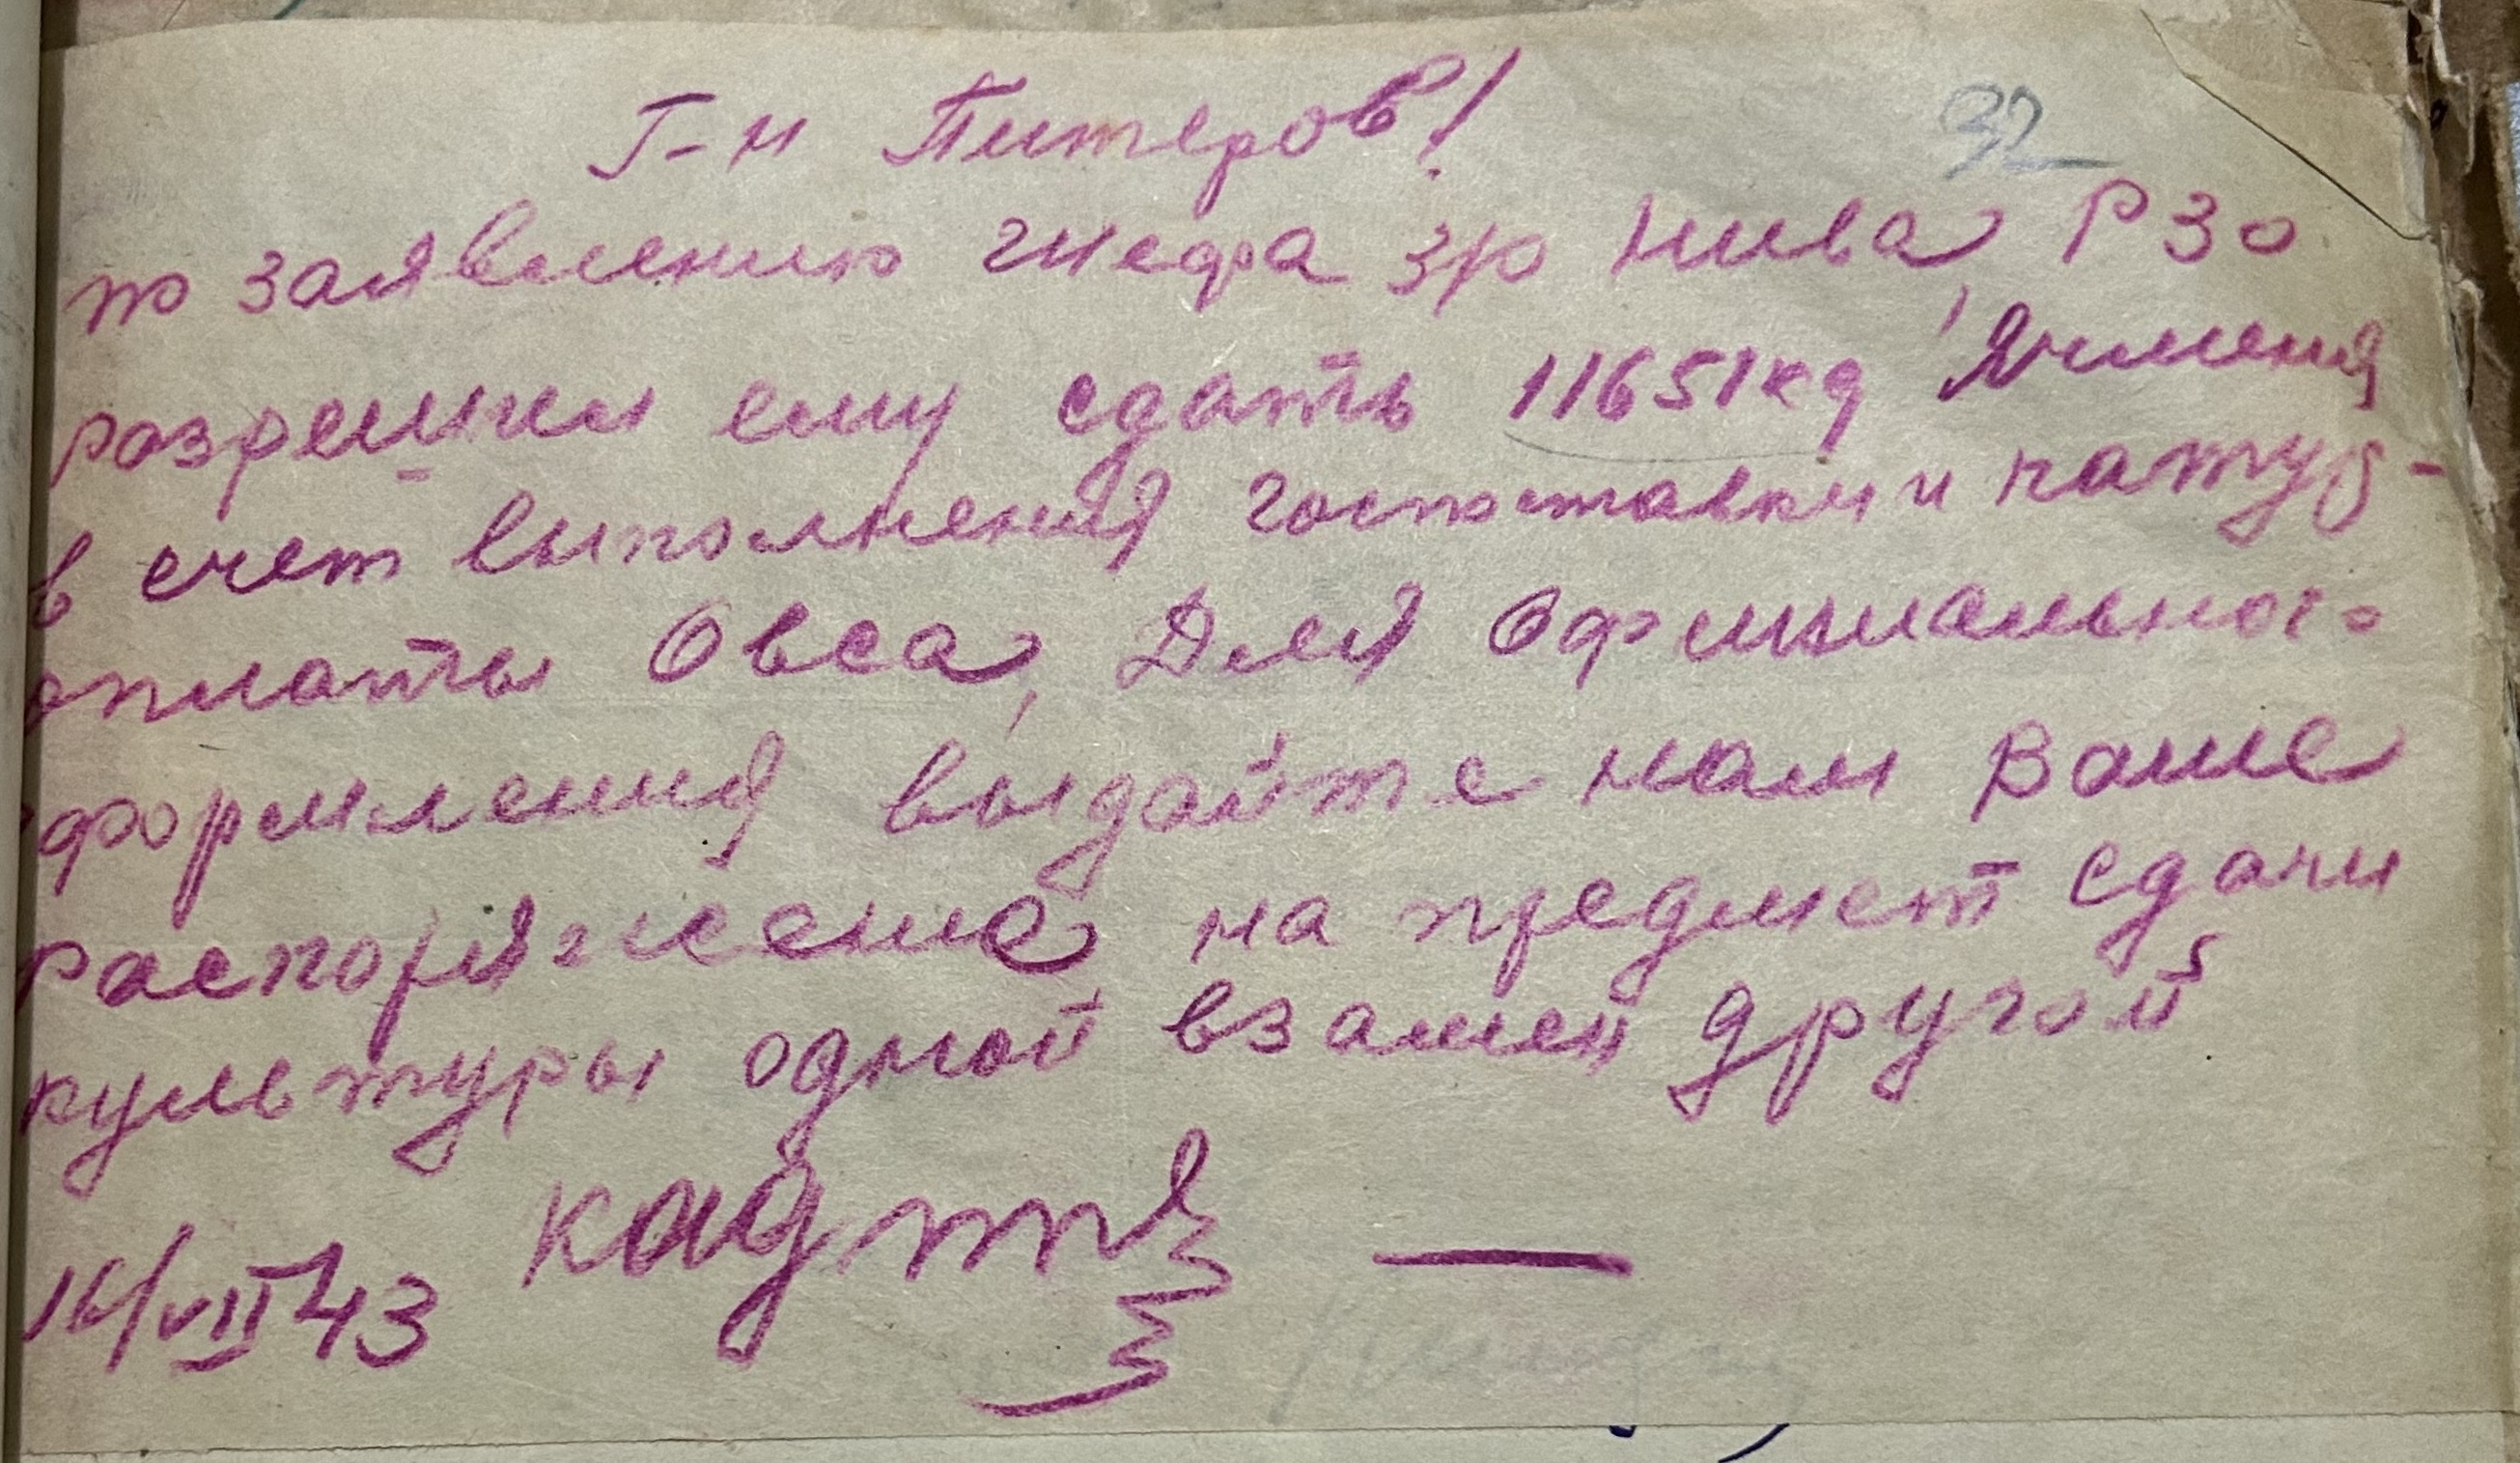 Г-н Питеров!
32
по заявлению шефа з/о Нива, РЗО
разрешил ему сдать 11651 кг Ячменя
в счет выполнения госпоставки и натур-
оплаты Овса, Для Официального
оформления выдайте нам Ваше
распоряжение на предмет сдачи
культуры одной взамен другой
16/VII 43